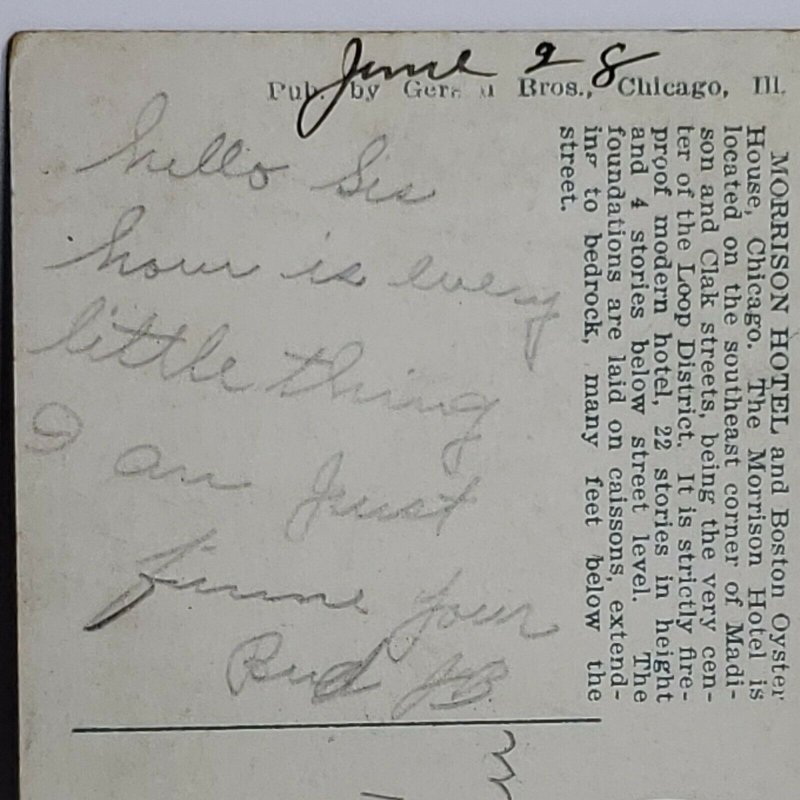 June 28
Pub. by Bros., Chicago, Ill.
hello Sis
how is every
little thing
I am Just
finne your
Bud JB
MORRISON HOTEL and Boston Oyster
House, Chicago. The Morrison Hotel is
located on the southeast corner of Madi-
son and Clak streets, being the very cen-
ter of the Loop District. It is strictly fire-
proof modern hotel, 22 stories in height
and 4 stories below street level. The
foundations are laid on caissons, extend-
ing to bedrock, many feet below the
street.